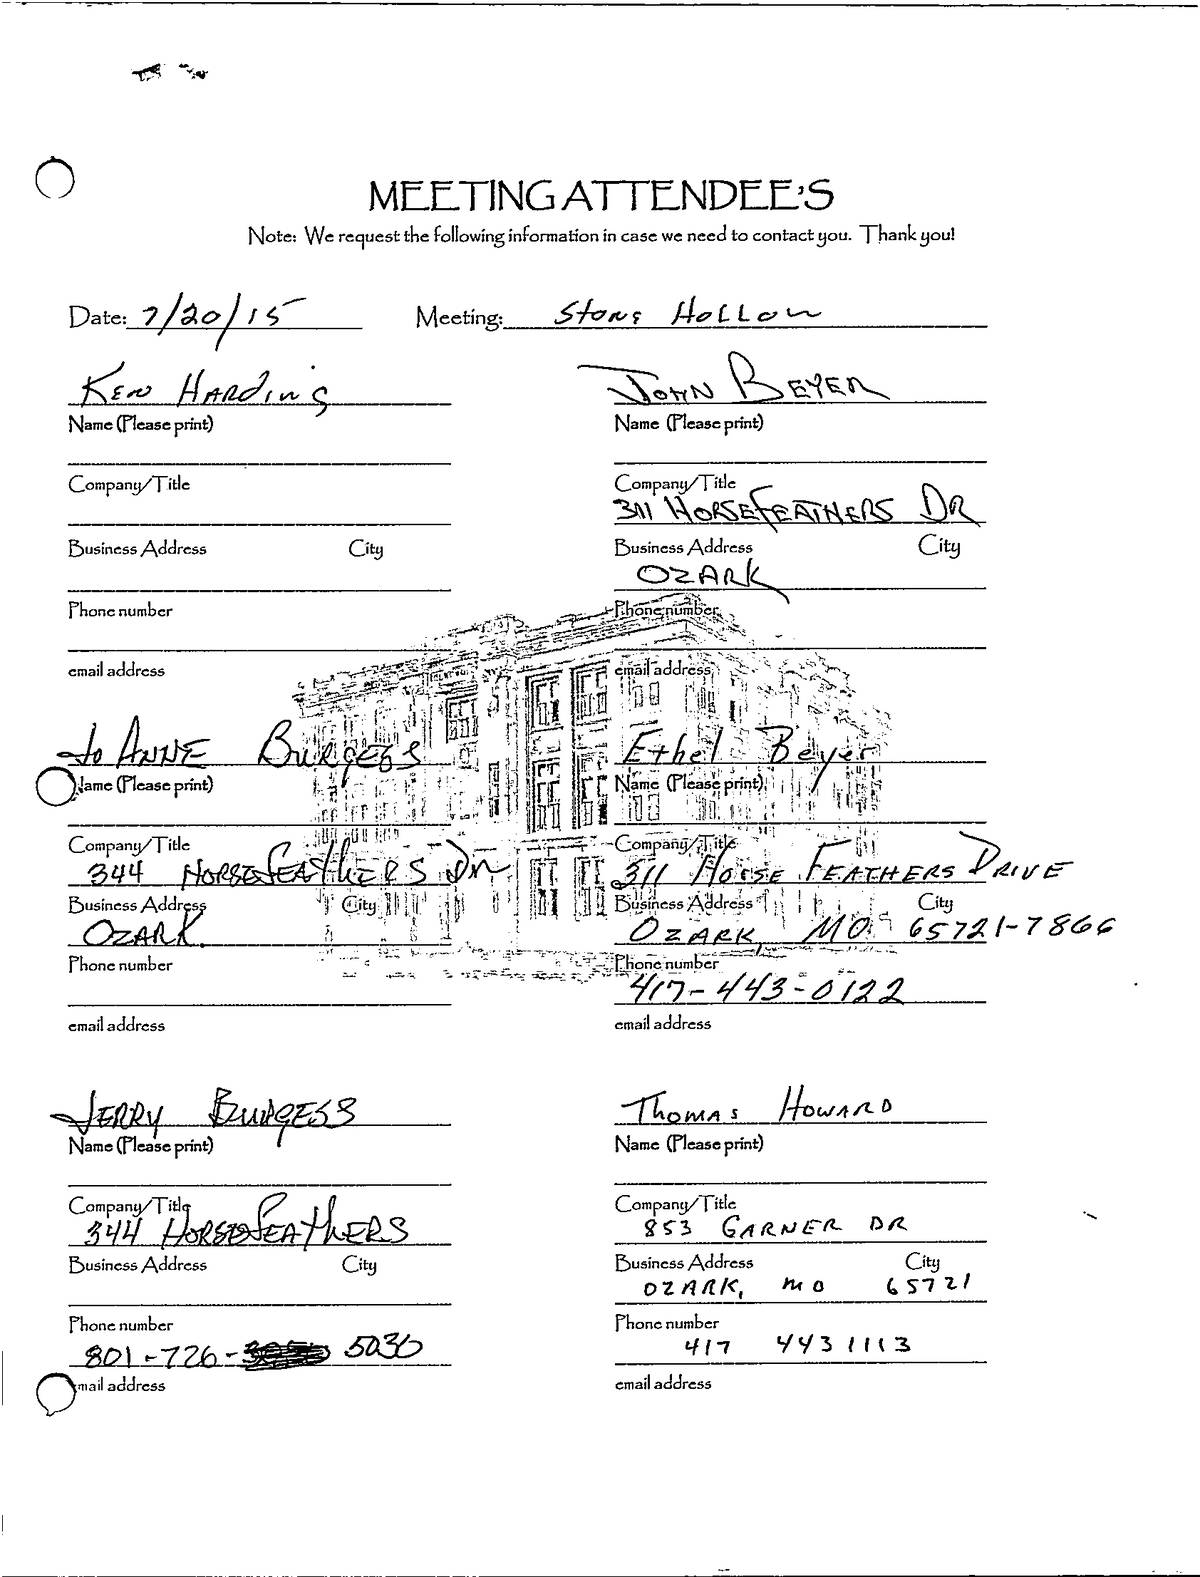 MEETING ATTENDEE'S
Note: We request the following information in case we need to contact you. Thank you!
Date: 7/20/15 Meeting: Stone Hollow
Ken Harding
Name (Please print)
Company/Title
Business Address City
Phone number
email address
John Beyer
Name (Please print)
Company/Title
311 Horsefeathers Dr
Business Address City
Ozark
Phone number
email address
Jo Anne Burgess
Name (Please print)
Company/Title
344 Horsefeathers Dr
Business Address City
Ozark
Phone number
email address
Ethel Beyer
Name (Please print)
Company/Title
311 Horse Feathers Drive
Business Address City
Ozark, MO. 65721-7866
Phone number
417-443-0122
email address
Jerry Burgess
Name (Please print)
Company/Title
344 Horsefeathers
Business Address City
Phone number
801-726- 5036
email address
Thomas Howard
Name (Please print)
Company/Title
853 Garner Dr
Business Address City
Ozark, MO 65721
Phone number
417 443 1113
email address